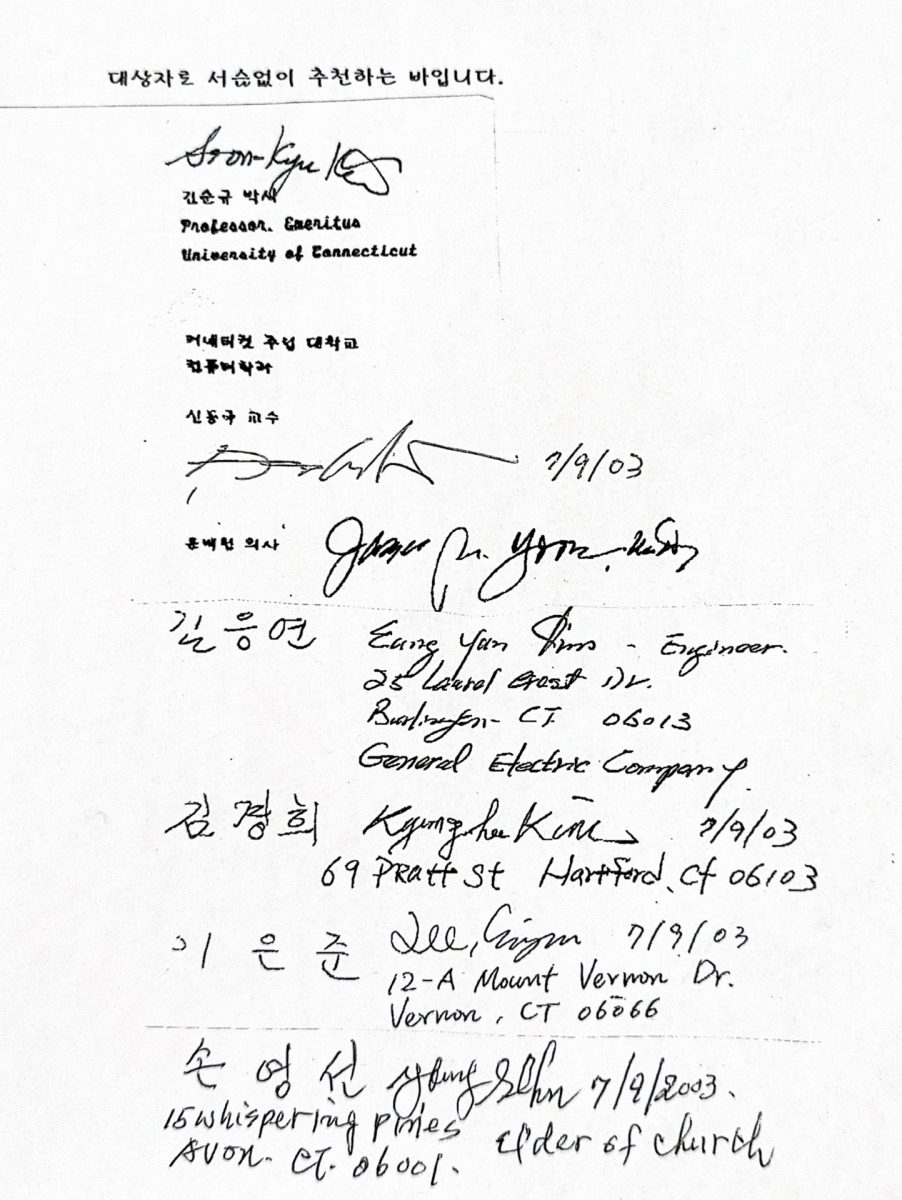 대상자로 서슴없이 추천하는 바입니다.
Soon-Kyu Kim
김순규 박사
Professor. Emeritus
University of Connecticut
커네티컷 주립 대학교
컴퓨터학과
신동국 교수
7/9/03
윤백현 의사 James Yoon
김응연 Eung Yun Kim - Engineer.
25 Laurel Crest Dr.
Burlington - CT 06013
General Electric Company
김경희 Kyunghee Kim 7/9/03
69 Pratt St Hartford, Ct 06103
이은준 Lee, 7/9/03
12-A Mount Vernon Dr.
Vernon, CT 06066
손영선 young Sohn 7/9/2003.
15 whispering pines
Avon. CT. 06001. Elder of church